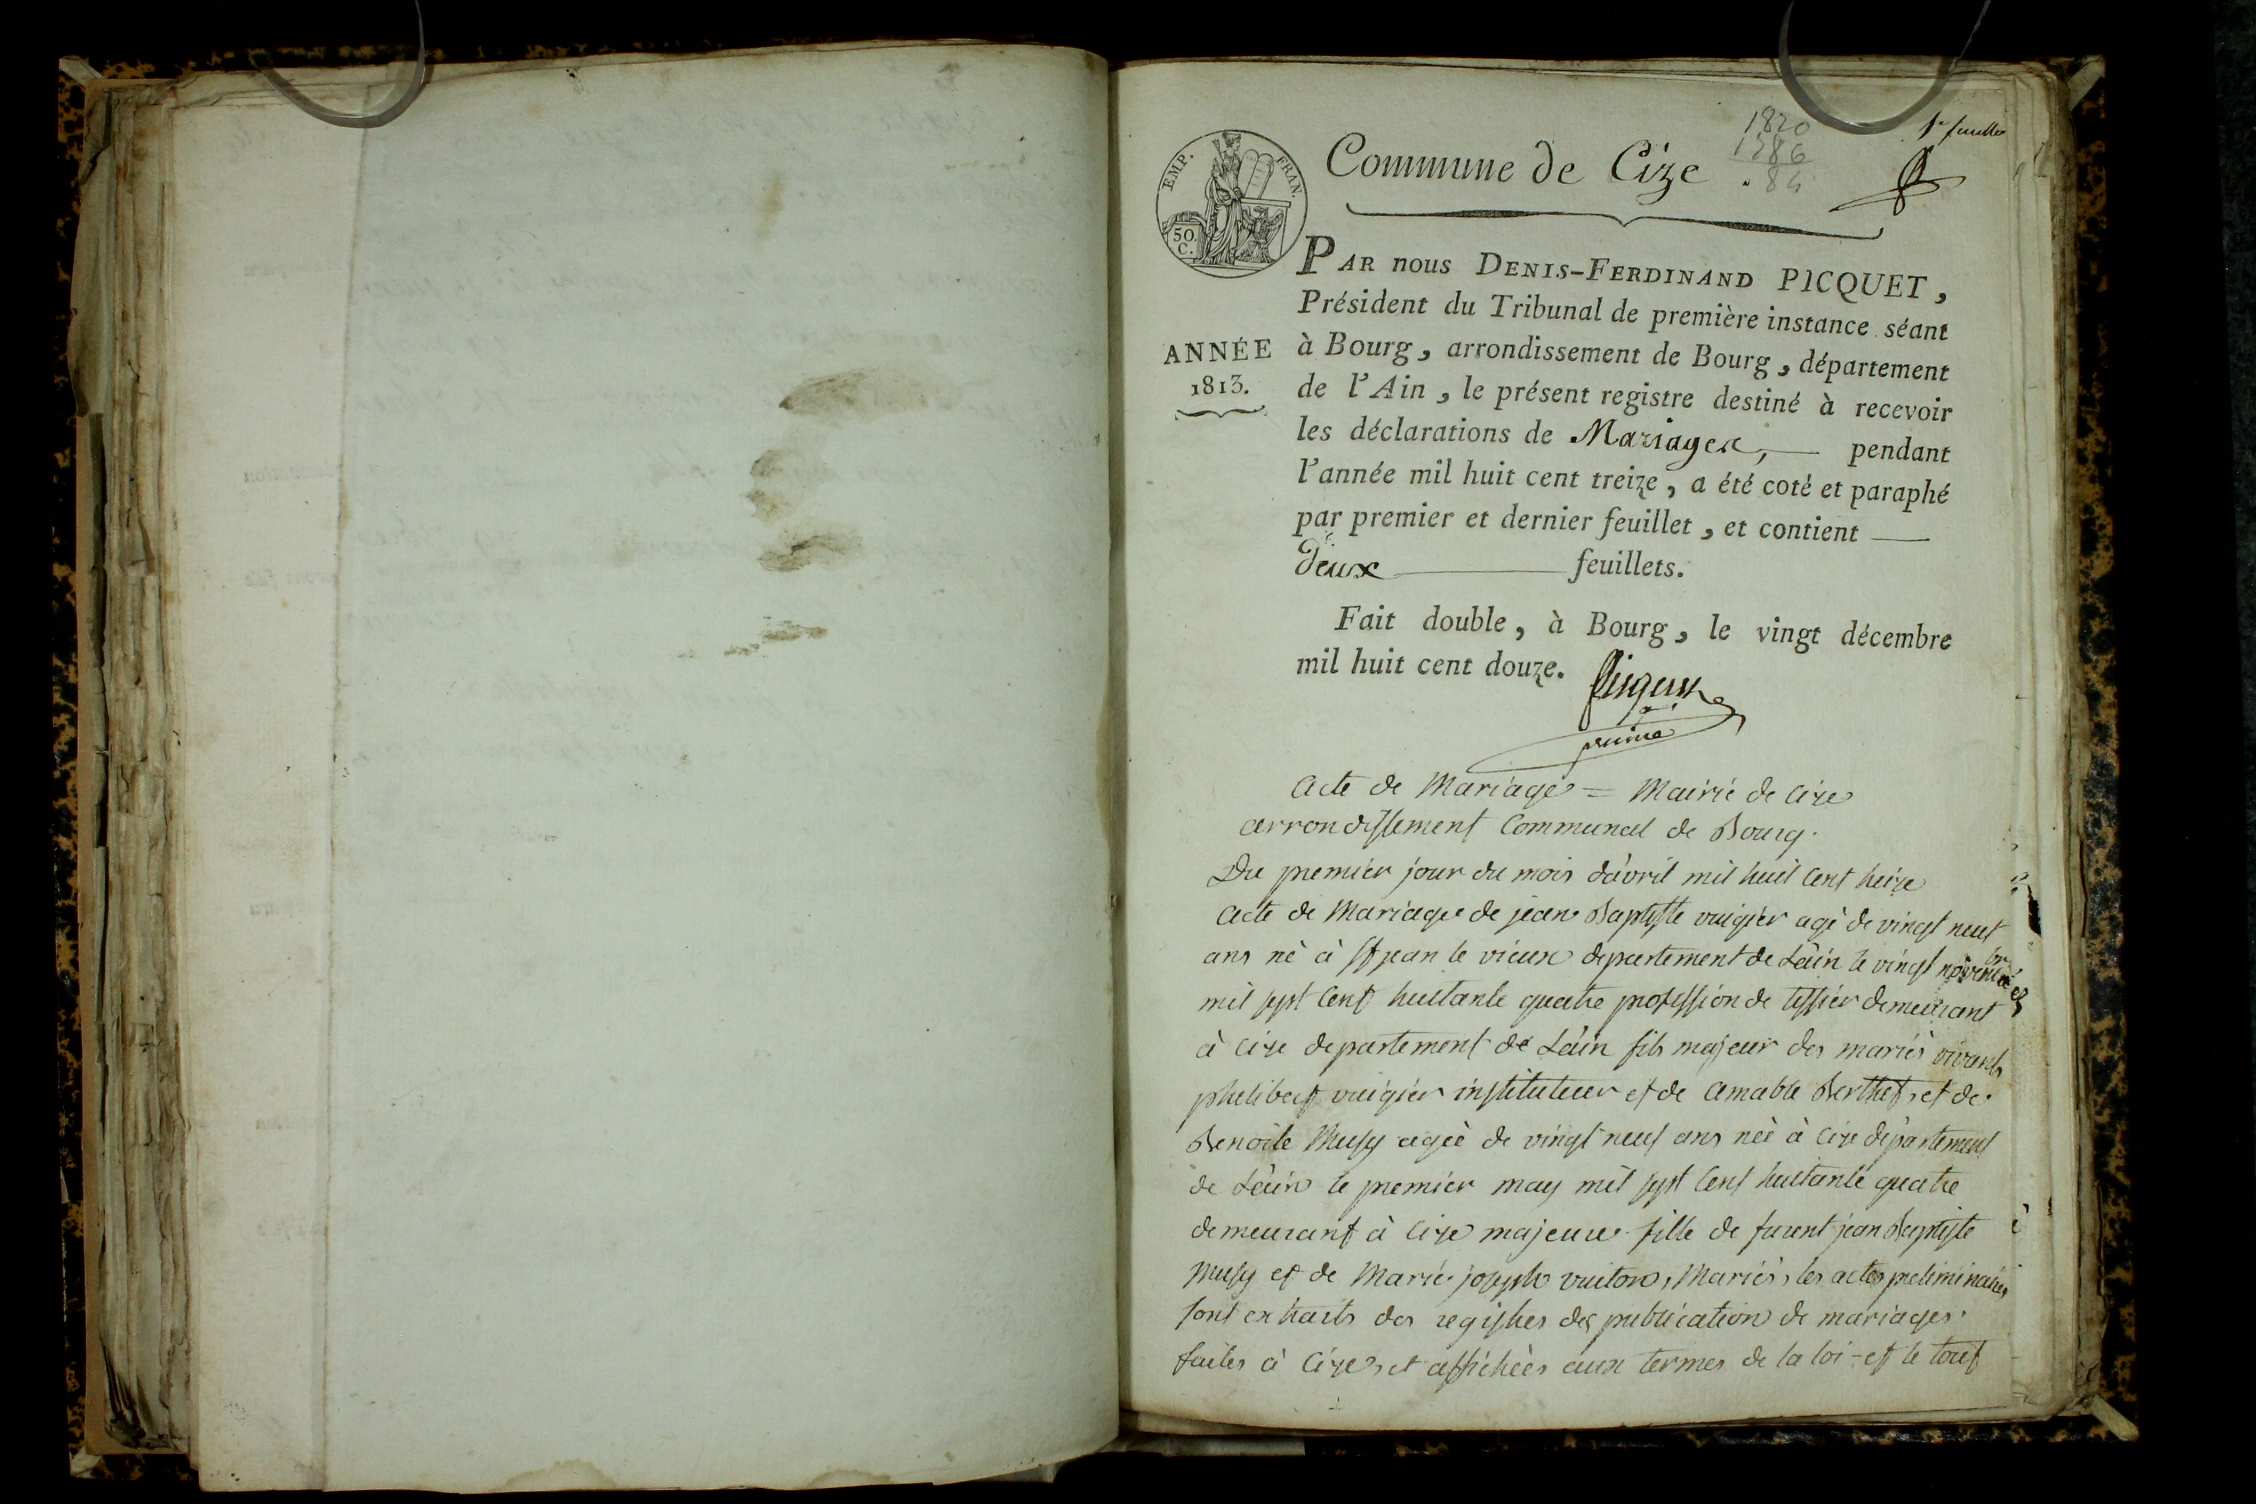 1820
1786
84
1er feuillet
EMP. FRAN.
50. C.
Commune de Cize
PAR nous DENIS-FERDINAND PICQUET,
Président du Tribunal de première instance séant
ANNÉE
1813.
à Bourg, arrondissement de Bourg, département
de l'Ain, le présent registre destiné à recevoir
les déclarations de Mariages, pendant
l'année mil huit cent treize, a été coté et paraphé
par premier et dernier feuillet, et contient
deux feuillets.
Fait double, à Bourg, le vingt décembre
mil huit cent douze.
acte de Mariage = Mairie de Cize
arrondissement Communal de Bourg.
Du premier jour du mois d'avril mil huit Cent treize
acte de Mariage de jean Baptiste vuigier agé de vingt neuf
ans né à St jean le vieux departement de L'ain le vingt novembre
mil sept Cent huitante quatre profession de tissier demeurant
à Cize departement de L'ain fils majeur des mariés vivants
philibert vuigier instituteur et de amable Berthet, et de
Benoite Musy agée de vingt neuf ans née à Cize departement
de L'ain le premier may mil sept Cent huitante quatre
demeurant à Cize majeure fille de furent jean Baptiste
Musy et de Marie josephe vuiton, Mariés, les actes preliminaires
sont extraits des registres des publication de mariages
faites à Cize, et affichées aux termes de la loi et le tout